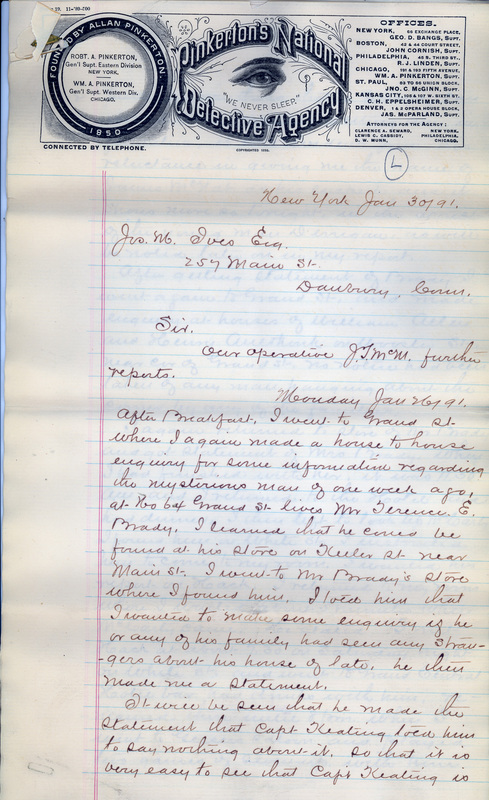 FOUNDED BY ALLAN PINKERTON.
ROBT. A. PINKERTON,
Gen'l Supt. Eastern Division
NEW YORK.
WM. A. PINKERTON,
Gen'l Supt. Western Div.
CHICAGO.
1850
CONNECTED BY TELEPHONE.
Pinkerton's National
"WE NEVER SLEEP."
Detective Agency
OFFICES.
NEW YORK, 66 EXCHANGE PLACE,
GEO. D. BANGS, SUPT.
BOSTON, 42 & 44 COURT STREET,
JOHN CORNISH, SUPT.
PHILADELPHIA, 45 S. THIRD ST.
R. J. LINDEN, SUPT.
CHICAGO, 191 & 193 FIFTH AVENUE,
WM. A. PINKERTON, SUPT.
ST. PAUL, UNION BLOCK,
JNO. C. McGINN, SUPT.
KANSAS CITY, 105 & 107 W. SIXTH ST.
C. H. EPPELSHEIMER, SUPT.
DENVER, 1 & 2 OPERA HOUSE BLOCK,
JAS. McPARLAND, SUPT.
ATTORNEYS FOR THE AGENCY:
CLARENCE A. SEWARD, NEW YORK.
LEWIS C. CASSIDY, PHILADELPHIA.
D. W. MUNN, CHICAGO.
L
New York Jan 30/91.
Jos. M. Ives Esq.
257 Main St.
Danbury, Conn.
Sir.
Our operative J.T.McM. further
reports.
Monday Jan 26/91.
After Breakfast, I went to Grand St.
where I again made a house to house
enquiry for some information regarding
the mysterious man of one week ago,
at No 64 Grand St. lives Mr Terence E.
Brady. I learned that he could be
found at his store on Keeler St. near
Main St. I went to Mr Brady's store
where I found him. I told him that
I wanted to make some enquiry if he
or any of his family had seen any Stran-
-gers about his house of late, he then
made me a statement.
It will be seen that he made the
statement that Capt Keating told him
to say nothing about it. so that it is
very easy to see that Capt Keating is